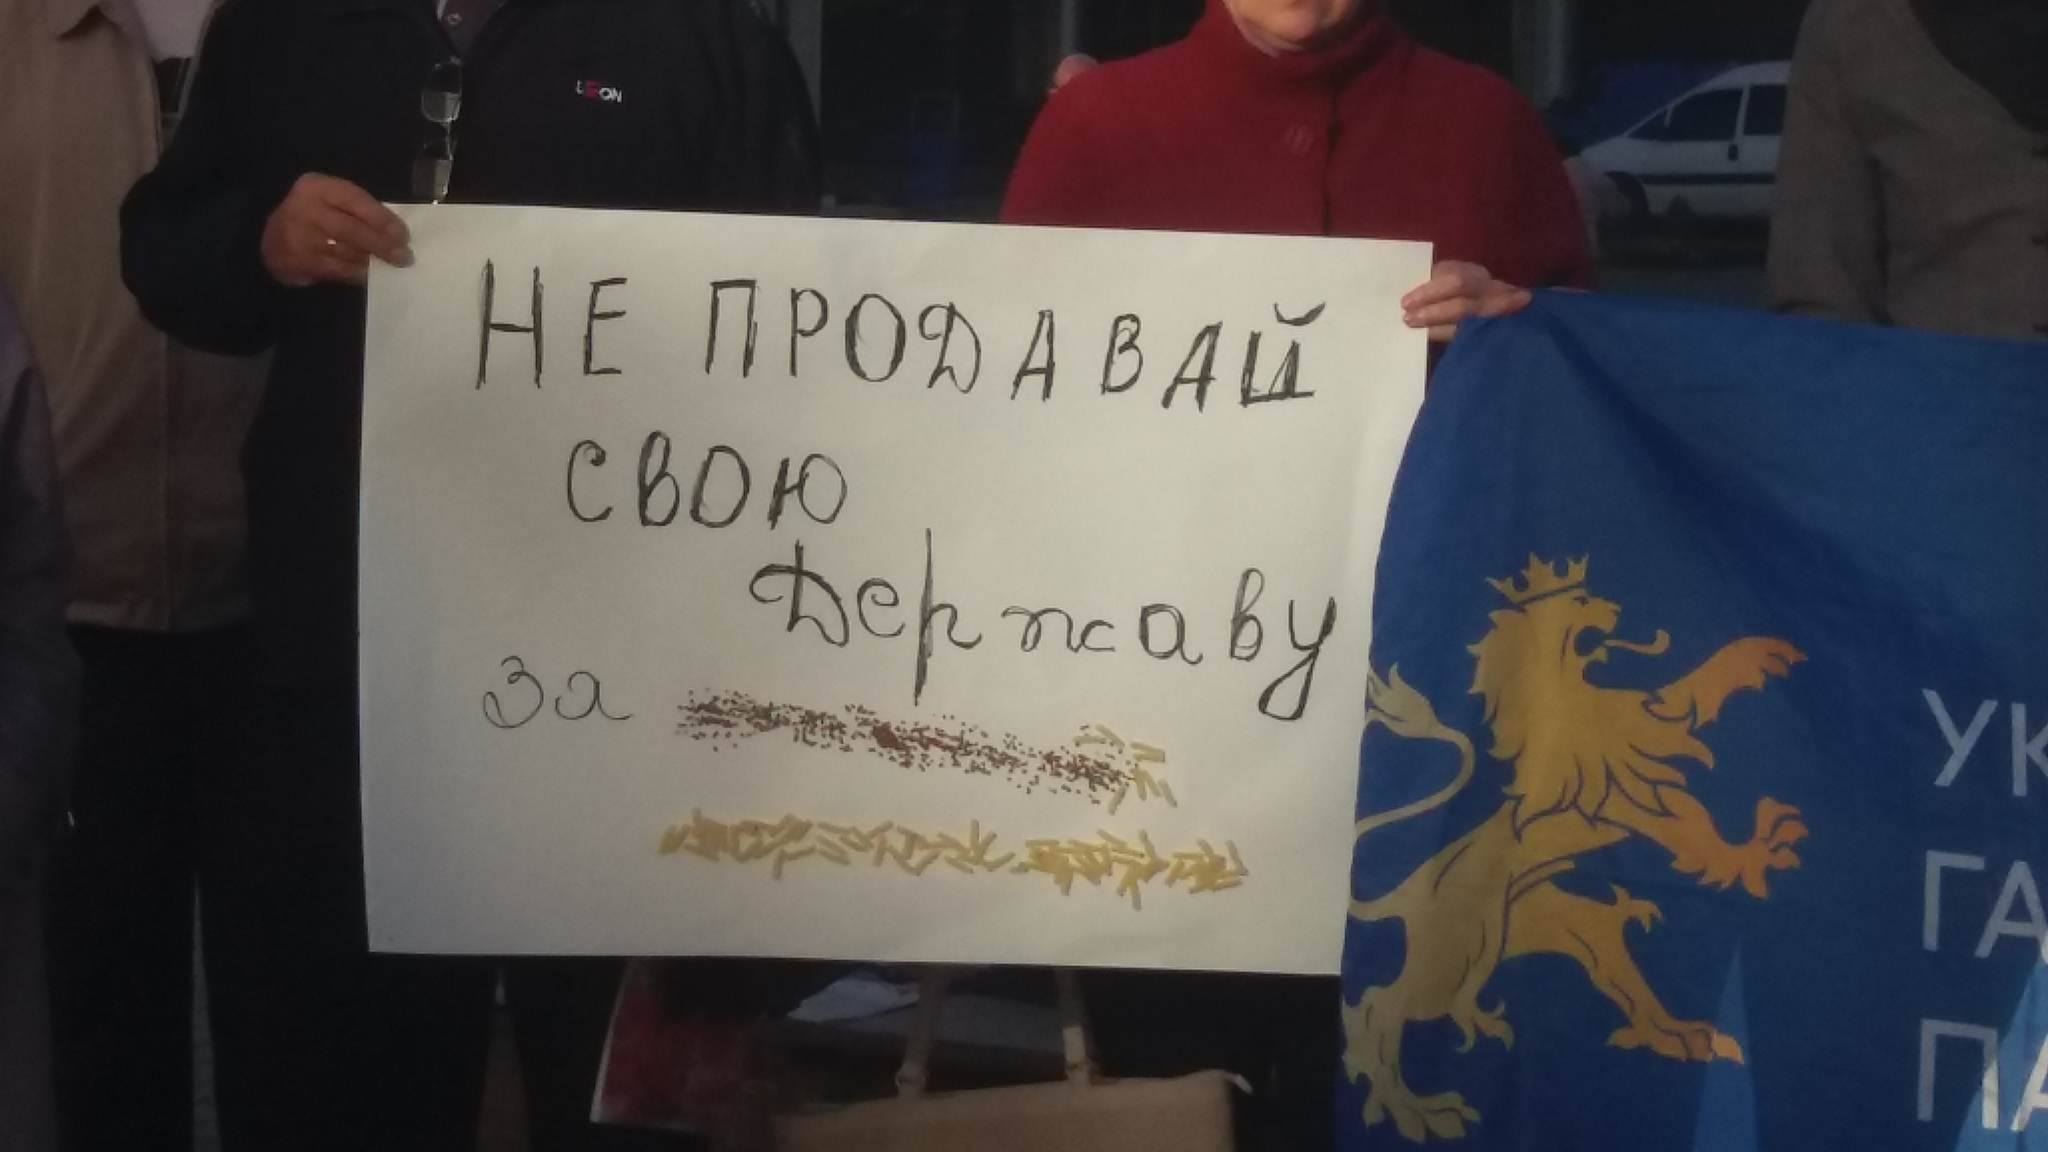 LEON
НЕ ПРОДАВАЙ
СВОЮ
Державу
за
УК
ГА
ПА